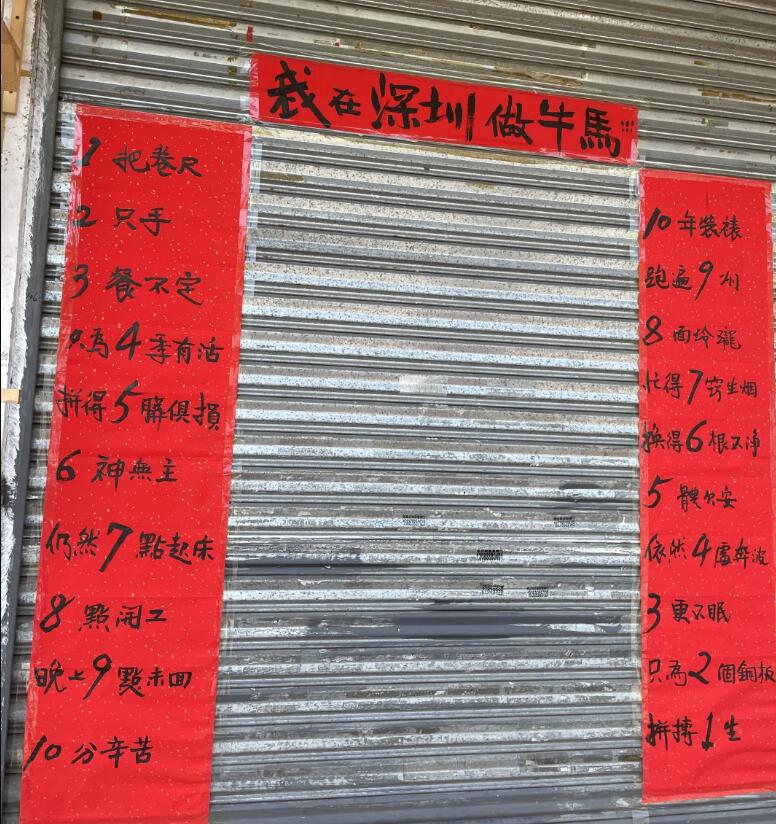 我在深圳做牛馬!!!
1把卷尺
2只手
3餐不定
只為4季有活
拼得5臟俱損
6神無主
仍然7點起床
8點開工
晚上9點未回
10分辛苦
10年裝裱
跑遍9州
8面玲瓏
忙得7窍生烟
換得6根不净
5體欠安
依然4處奔波
3更不眠
只為2個銅板
拼搏1生